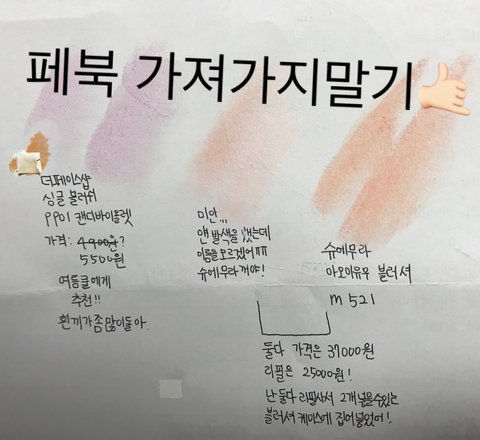 페북 가져가지말기
더페이스샵
싱글 블러쉬
PP01 캔디바이올렛
가격: 4900원?
5500원
여동쿨에게
추천!!
흰끼가 좀 많이 돌아.
미안,,,
얜 발색을 했는데
이름을 모르겠어ㅠㅠ
슈에무라 꺼야!
슈에무라
아오이유우 블러셔
m 521
둘다 가격은 37000원
리필은 25000원!
난 둘다 리필사서 2개 넣을수있는
블러셔 케이스에 집어 넣었어!